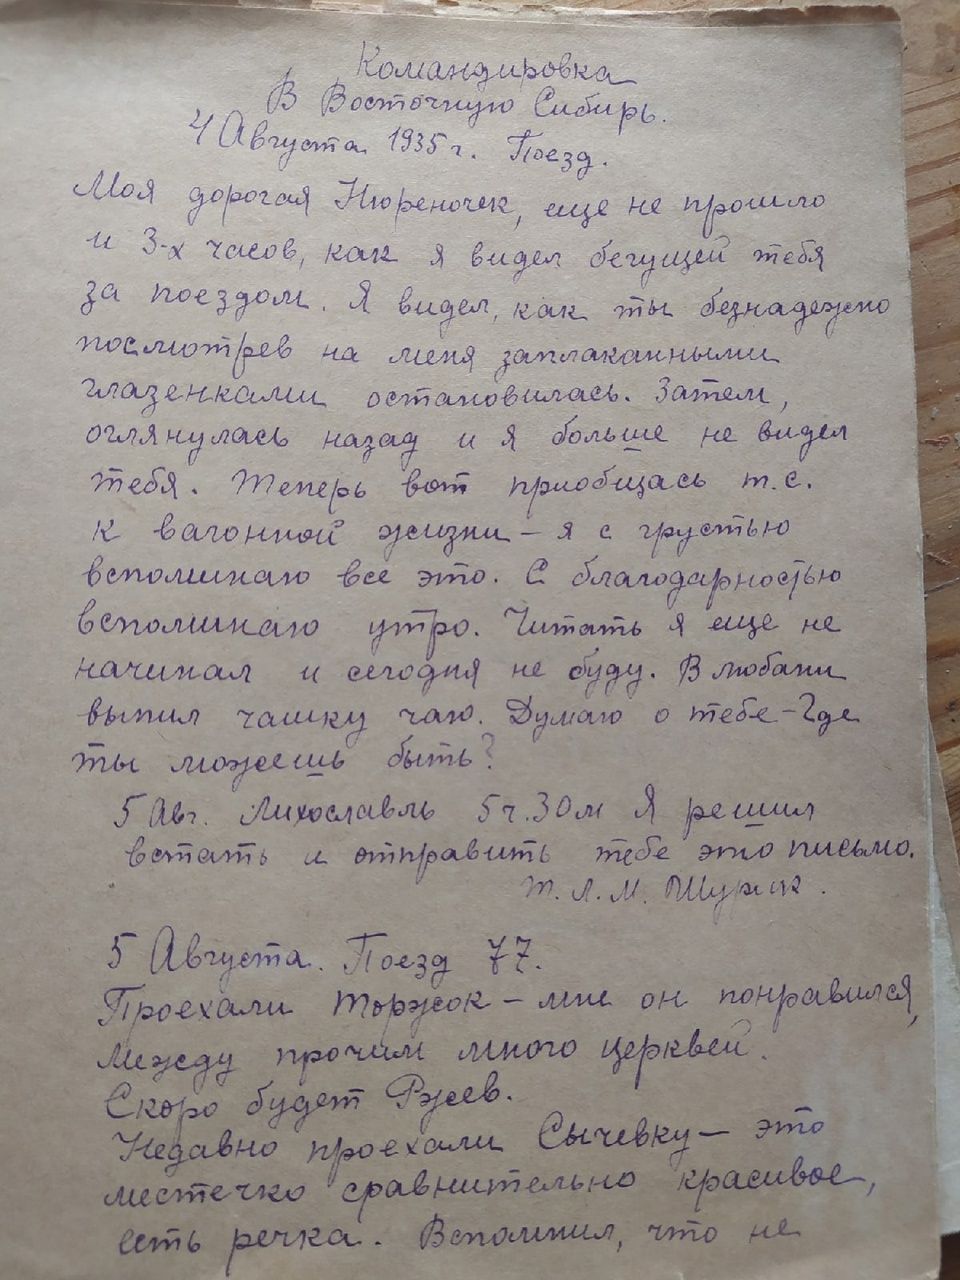 Командировка
В Восточную Сибирь.
4 Августа 1935 г. Поезд.
Моя дорогая Нюреночек, еще не прошло
и 3-х часов, как я видел бегущей тебя
за поездом. Я видел, как ты безнадежно
посмотрев на меня заплаканными
глазенками остановилась. Затем,
оглянулась назад и я больше не видел
тебя. Теперь вот приобщась т.с.
к вагонной жизни – я с грустью
вспоминаю все это. С благодарностью
вспоминаю утро. Читать я еще не
начинал и сегодня не буду. В Любани
выпил чашку чаю. Думаю о тебе – Где
ты можешь быть?
5 Авг. Лихославль 5 ч. 30 м Я решил
встать и отправить тебе это письмо.
Т. Л. М. Шурик.
5 Августа. Поезд 77.
Проехали Торжок – мне он понравился,
между прочим много церквей.
Скоро будет Ржев.
Недавно проехали Сычевку – это
местечко сравнительно красивое,
есть речка. Вспомнил, что не